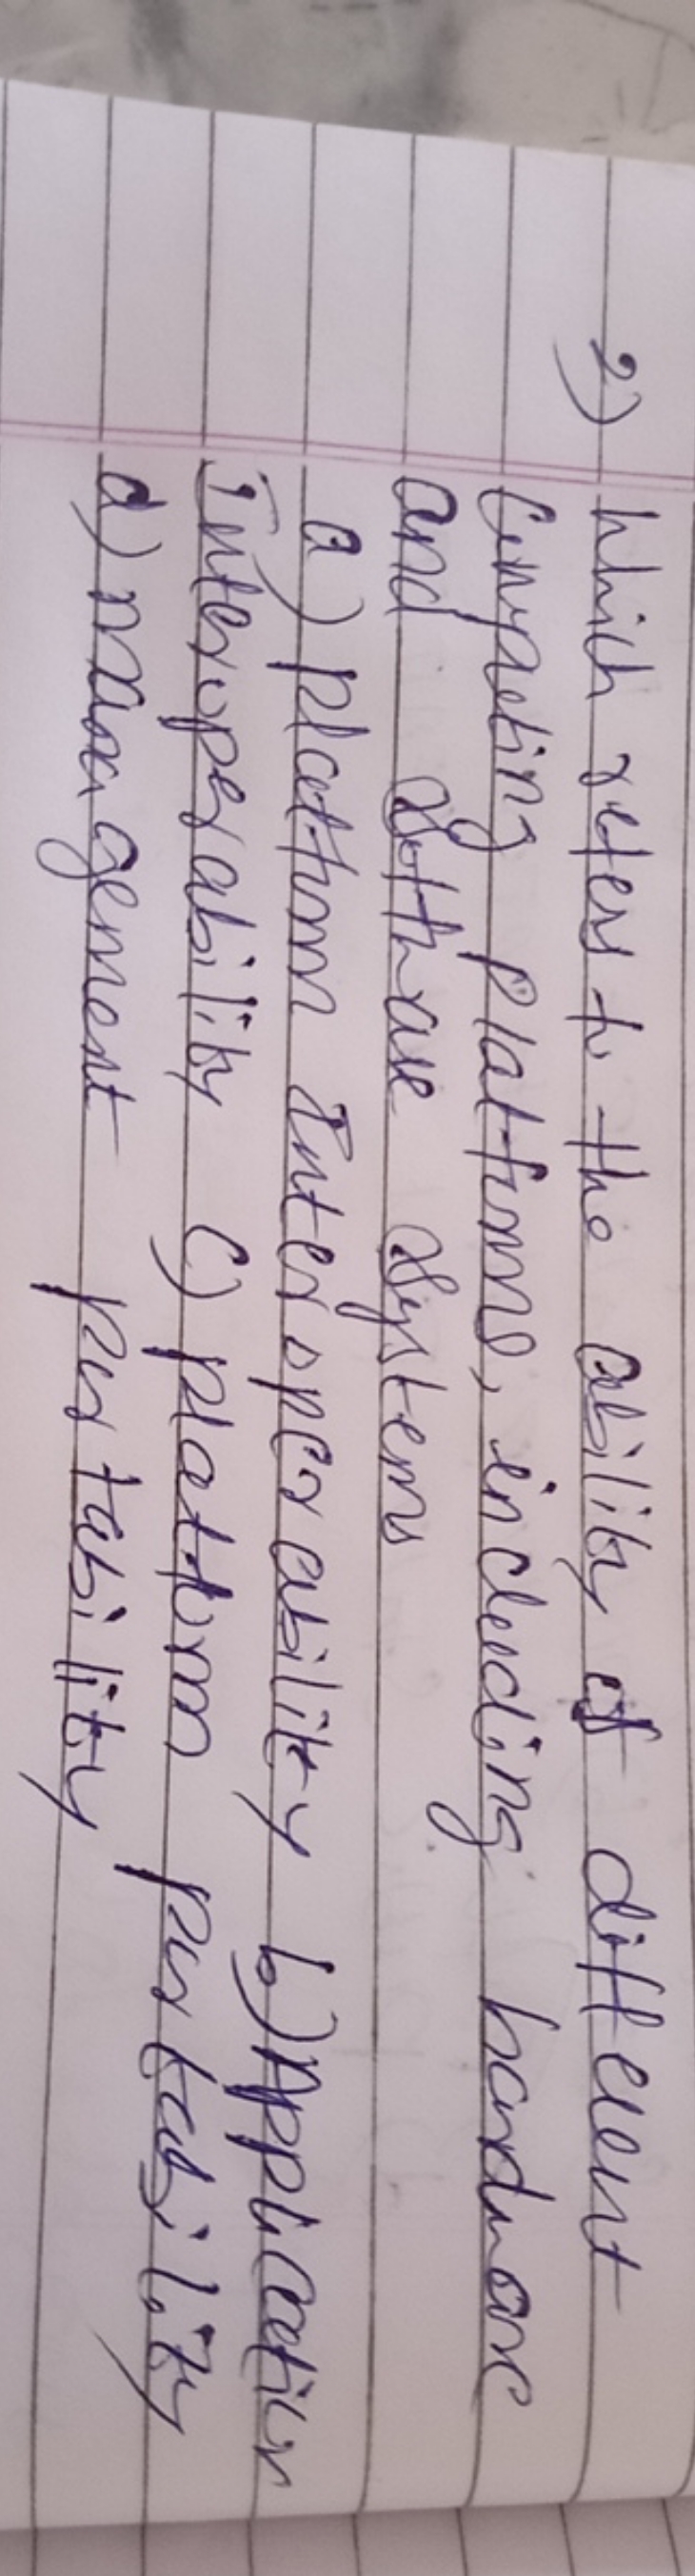 2) Which refers to the ability of different
Computing platforms, including hardware
and software systems
a) platform Interoperability b) Application
Interoperability c) platform portability
d) management portability